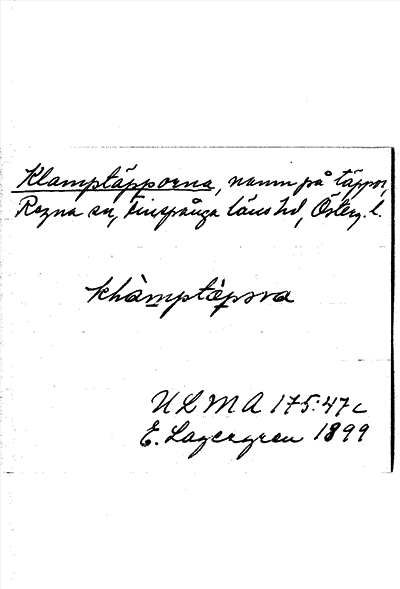 Klamptäpporna, namn på täppor,
Regna sn, Finspånga läns hd, Österg. l.
khàmptä̀pơra
U L M A 175:47c
E. Lagergren 1899